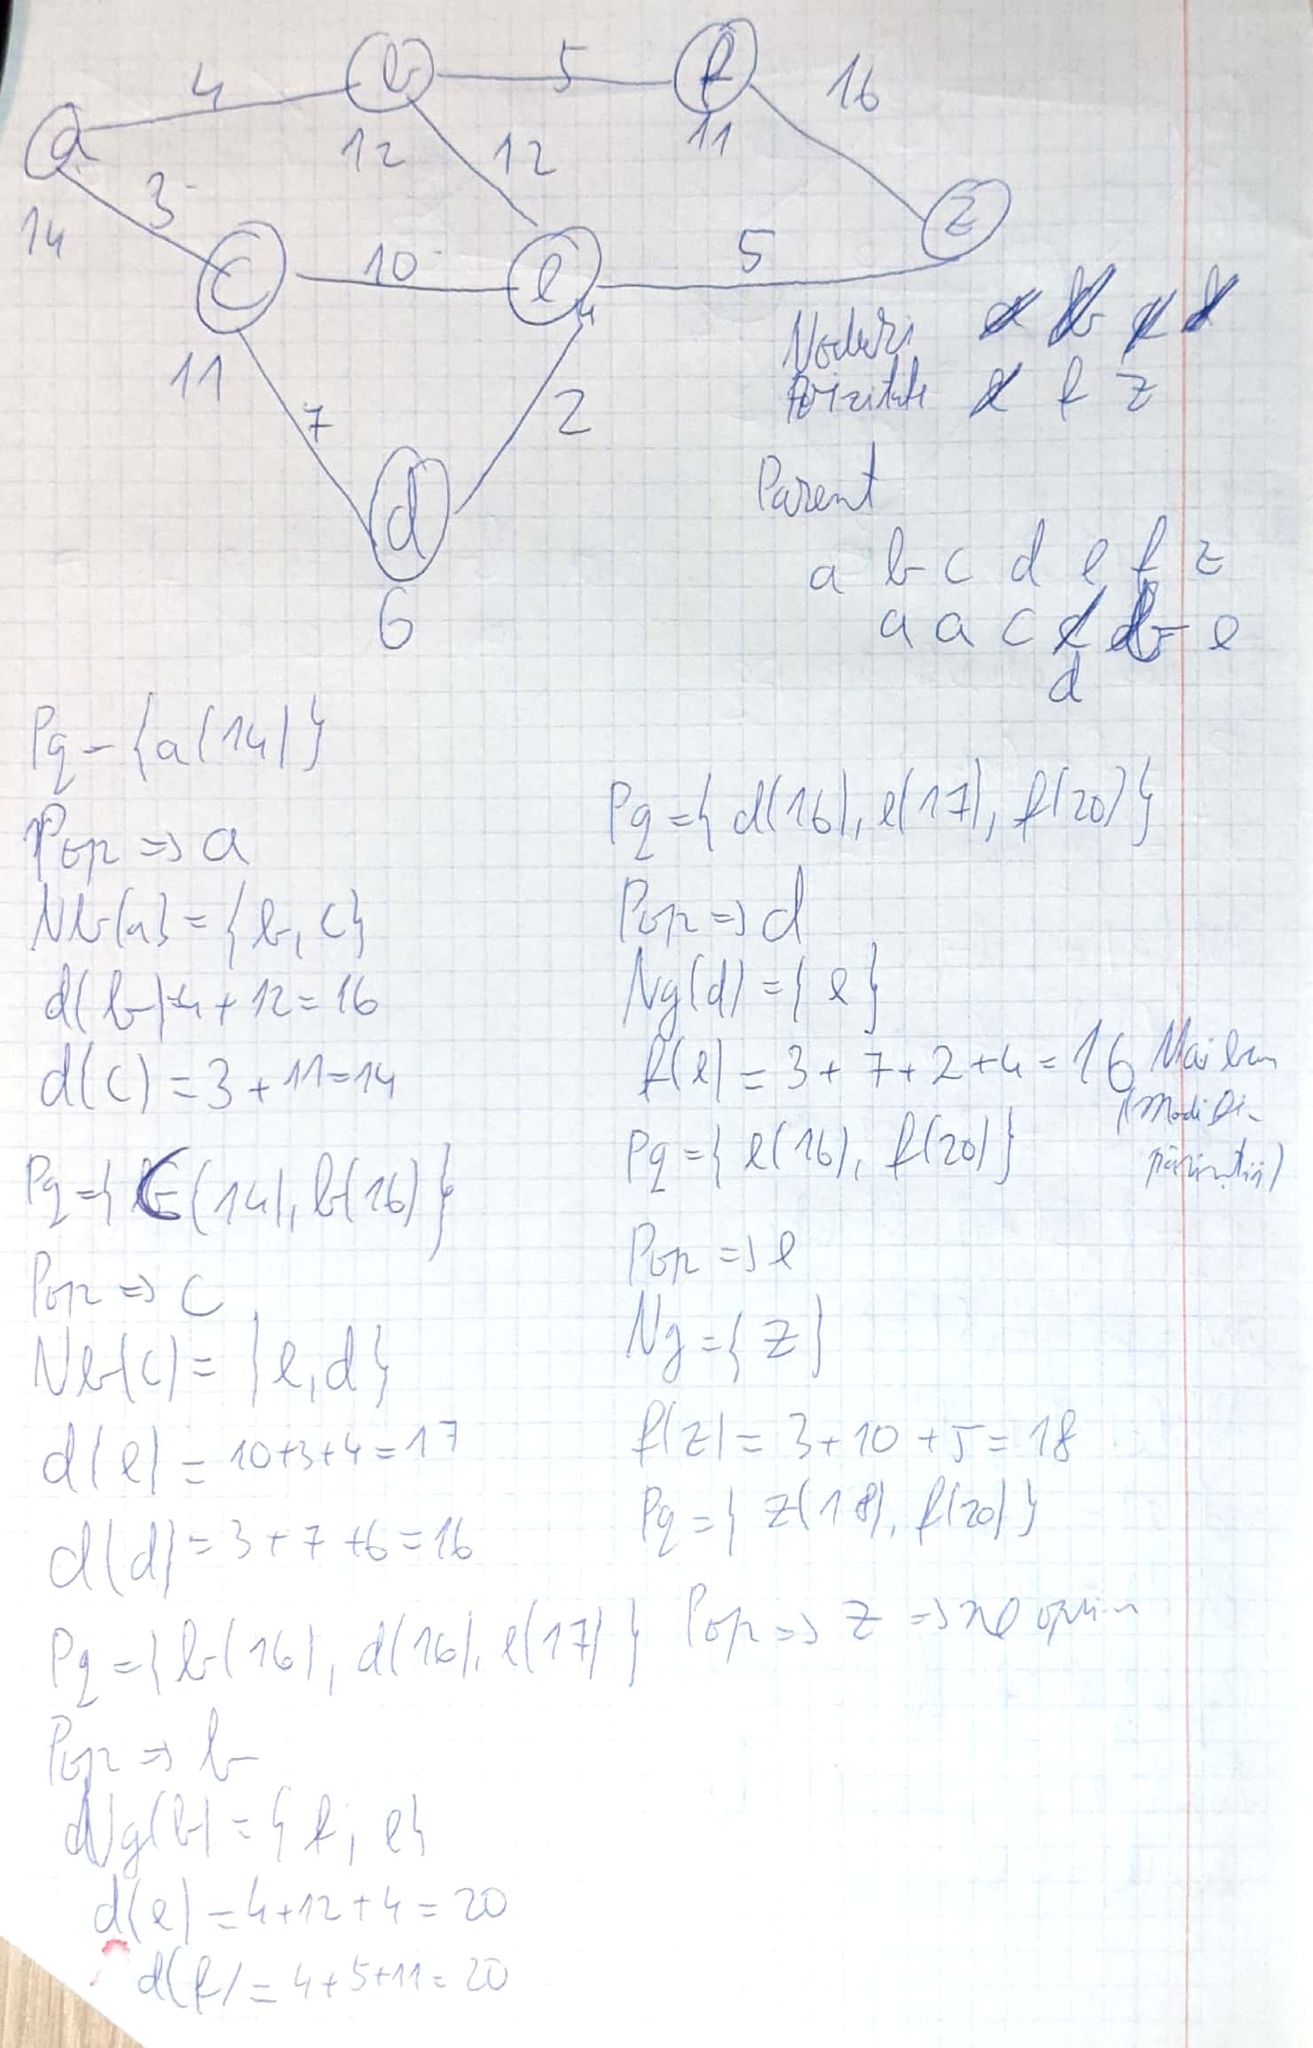 4
b
5
f
16
a
12
12
11
3
14
c
10
e
5
z
4
11
7
2
d
6
Noduri a b c d
vizitate e f z
Parent
a b c d e f z
a a c b e
d
Pq = {a(14)}
Pop => a
Nb(a) = {b, c}
d(b) = 4 + 12 = 16
d(c) = 3 + 11 = 14
Pq = {c(14), b(16)}
Pop => c
Nb(c) = {e, d}
d(e) = 10+3+4 = 17
d(d) = 3 + 7 + 6 = 16
Pq = {b(16), d(16), e(17)}
Pop => b
Ng(b) = {f, e}
d(e) = 4+12+4 = 20
d(f) = 4+5+11 = 20
Pq = {d(16), e(17), f(20)}
Pop => d
Ng(d) = {e}
f(e) = 3 + 7 + 2 + 4 = 16 Mai bun
(modific
părintii)
Pq = {e(16), f(20)}
Pop => e
Ng = {z}
f(z) = 3 + 10 + 5 = 18
Pq = {z(18), f(20)}
Pop => z =>